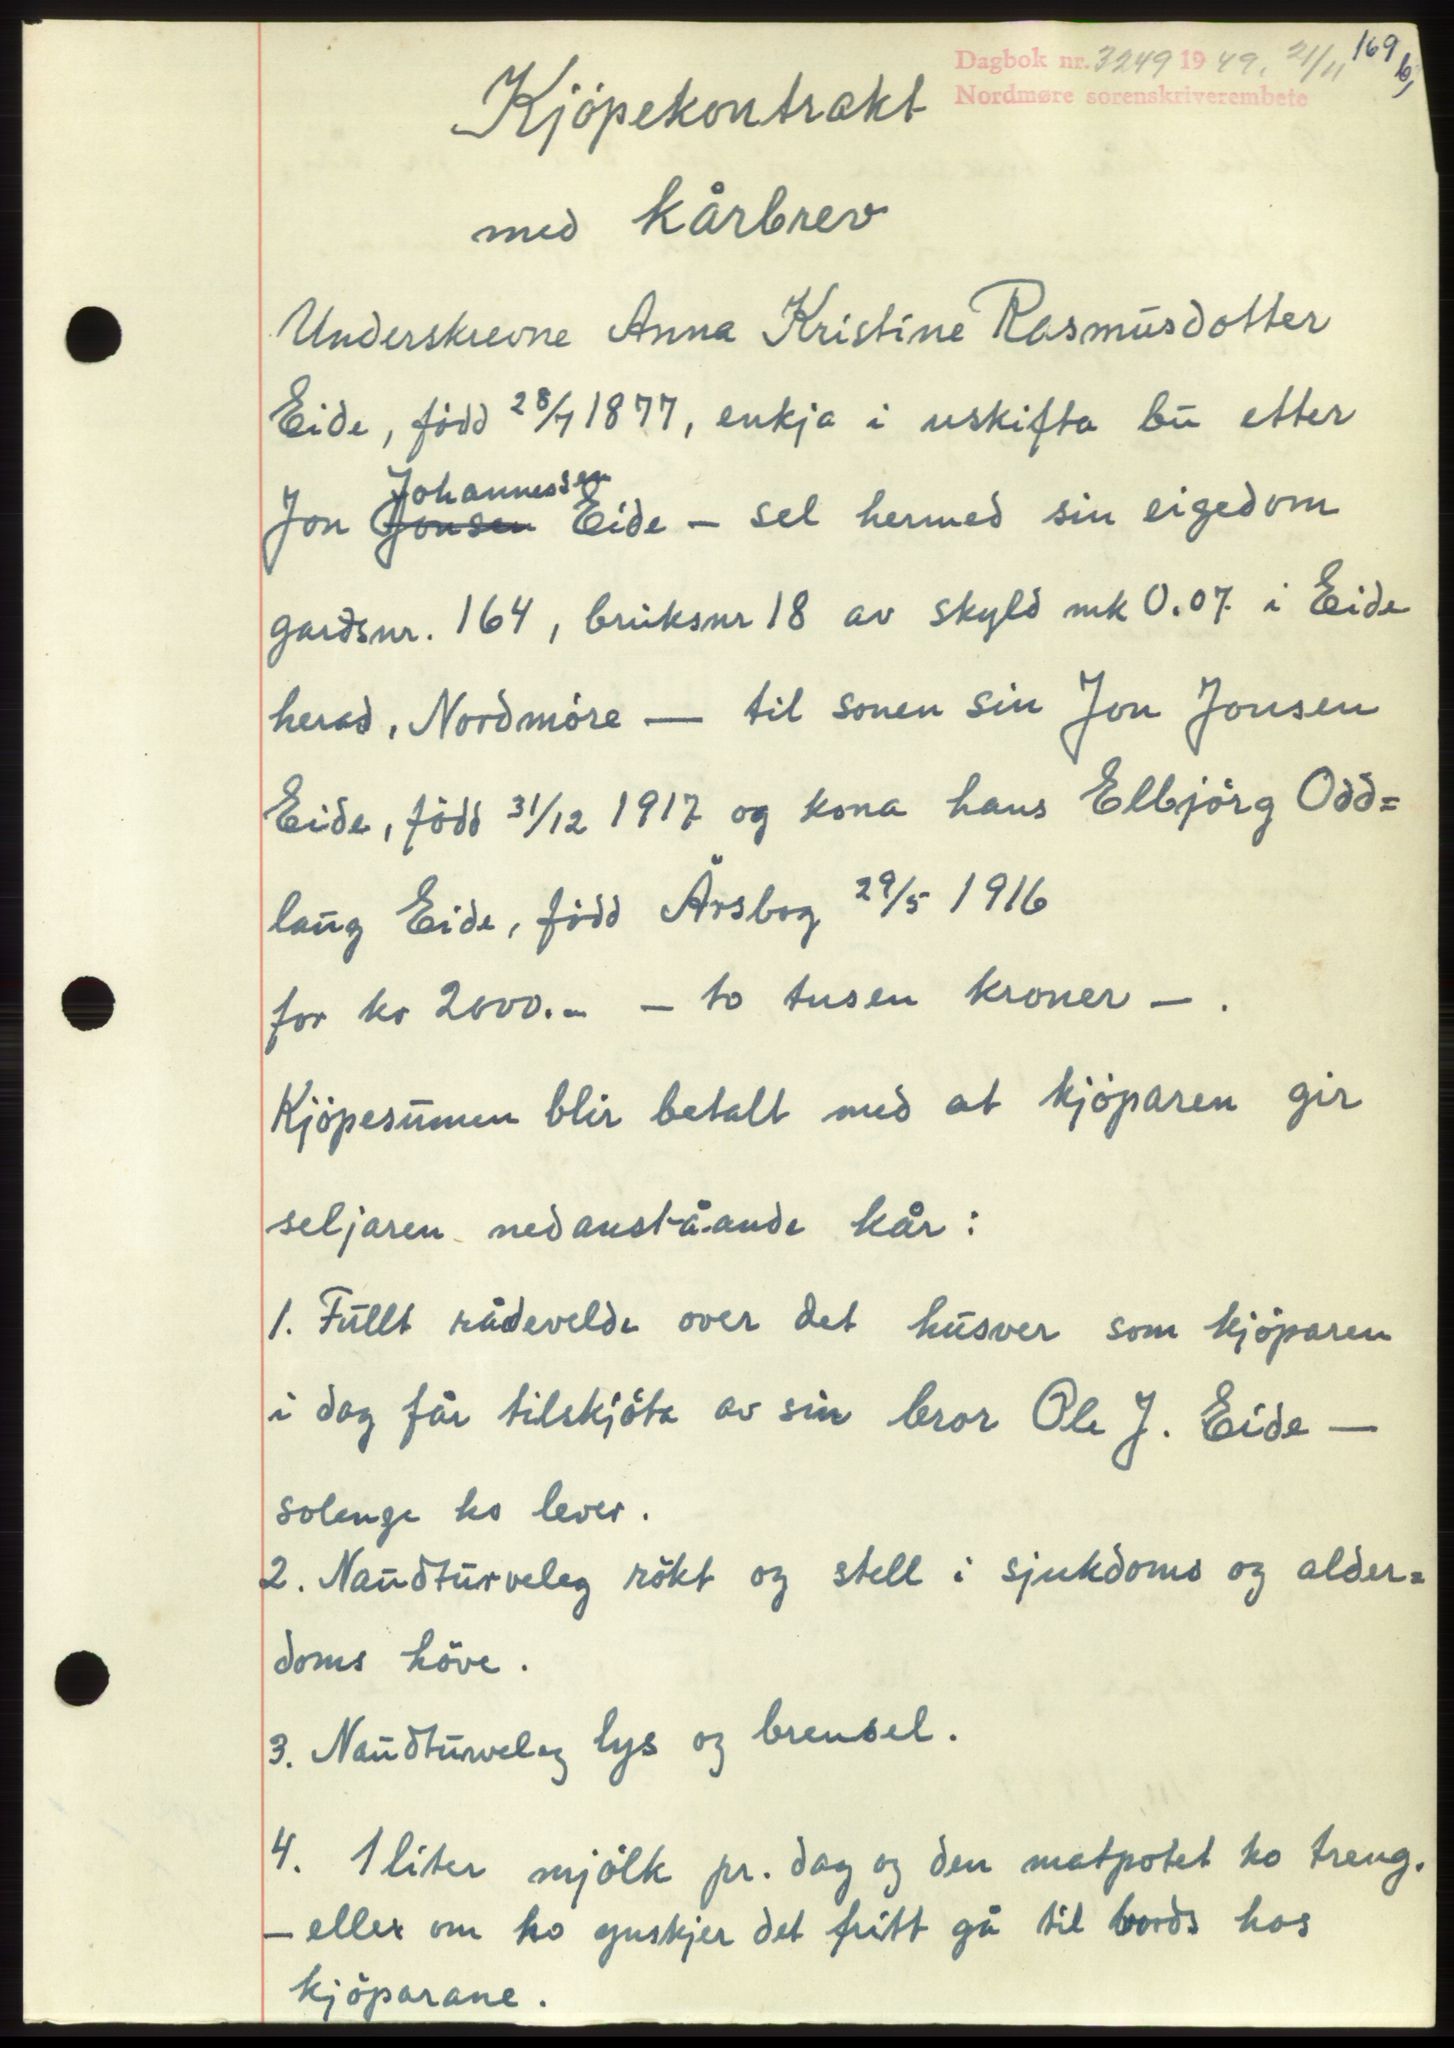 Dagbok nr. 3249 1949. 21/11 169 b,
Nordmøre sorenskriverembete
Kjöpekontrakt
med kårbrev
Underskrevne Anna Kristine Rasmusdotter
Eide, född 28/7 1877, enkja i uskifta bu etter
Johannessen
Jon Jonsen Eide – sel hermed sin eigedom
gardsnr. 164, bruksnr 18 av skyld mk 0.07. i Eide
herad, Nordmöre — til sonen sin Jon Jonsen
Eide, född 31/12 1917 og kona hans Elbjörg Odd=
laug Eide, född Årsbog 29/5 1916
for kr 2000.– – to tusen kroner – .
Kjöpesumen blir betalt med at kjöparen gir
seljaren nedanståande kår:
1. Fullt rådevelde over det husver som kjöparen
i dag får tilskjöta av sin bror Ole J. Eide —
solenge ho lever.
2. Naudturveleg rökt og stell i sjukdoms og alder=
doms höve.
3. Naudturveleg lys og brensel.
4. 1 liter mjölk pr. dag og den matpotet ho treng.
– eller om ho ynskjer det fritt gå til bords hos
kjöparane.